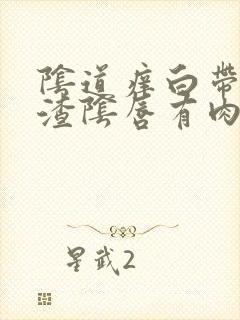 陰道痒白帶
渣陰唇有肉
星武2